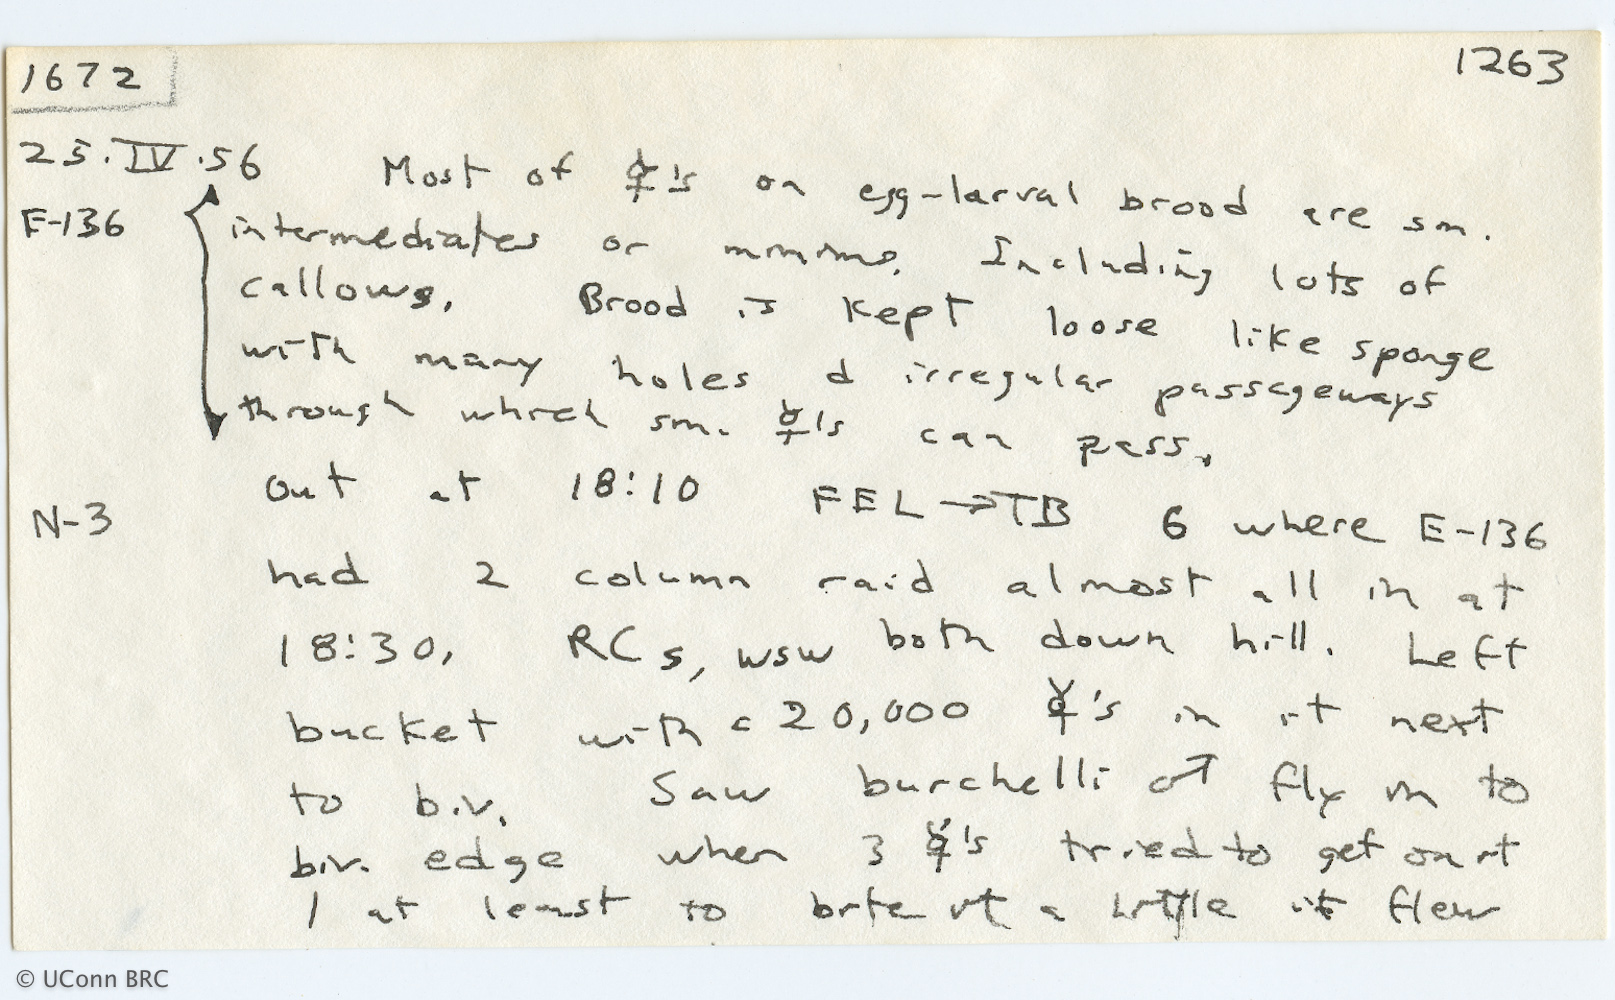 1672
1263
25.IV.56 Most of ☿'s on egg-larval brood are sm.
E-136 intermediates or minims. Including lots of
callows. Brood is kept loose like sponge
with many holes & irregular passageways
through which sm. ☿'s can pass.
N-3 Out at 18:10 FEL → TB 6 where E-136
had 2 column raid almost all in at
18:30, RC s, wsw both down hill. Left
bucket with c 20,000 ☿'s in it next
to biv. Saw burchelli ♂ fly in to
biv. edge when 3 ☿'s tried to get on it
1 at least to bite it a little it flew
© UConn BRC